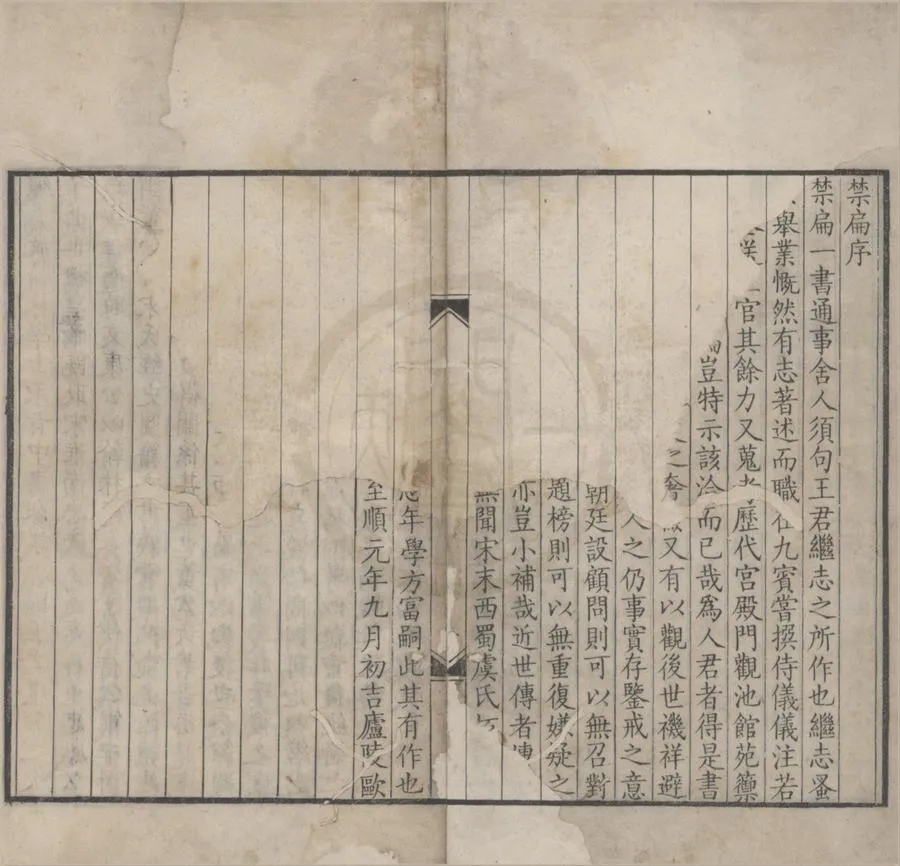 禁扁序
禁扁一書通事舍人須句王君繼志之所作也繼志蚤
舉業慨然有志著述而職在九賓嘗撰侍儀儀注若
官其餘力又蒐考歷代宮殿門觀池館苑籞
豈特示該洽而已哉爲人君者得是書
之奢又有以觀後世禨祥避
人之仍事實存鑒戒之意
朝廷設顧問則可以無召對
題榜則可以無重復嫌疑之
亦豈小補哉近世傳者
無聞宋末西蜀虞氏
年學方富嗣此其有作也
至順元年九月初吉廬陵歐